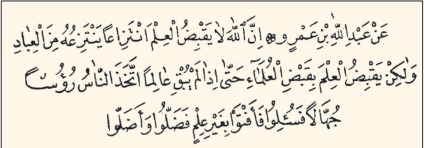 عَنْ عَبْدِ اللهِ بْنِ عَمْرٍو ﷺ إِنَّ اللهَ لَا يَقْبِضُ الْعِلْمَ انْتِزَاعًا يَنْتَزِعُهُ مِنَ الْعِبَادِ
وَلٰكِنْ يَقْبِضُ الْعِلْمَ بِقَبْضِ الْعُلَمَاءِ حَتّٰى إِذَا لَمْ يُبْقِ عَالِمًا اتَّخَذَ النَّاسُ رُؤُسًا
جُهَّالًا فَسُئِلُوا فَأَفْتَوْا بِغَيْرِ عِلْمٍ فَضَلُّوا وَأَضَلُّوا